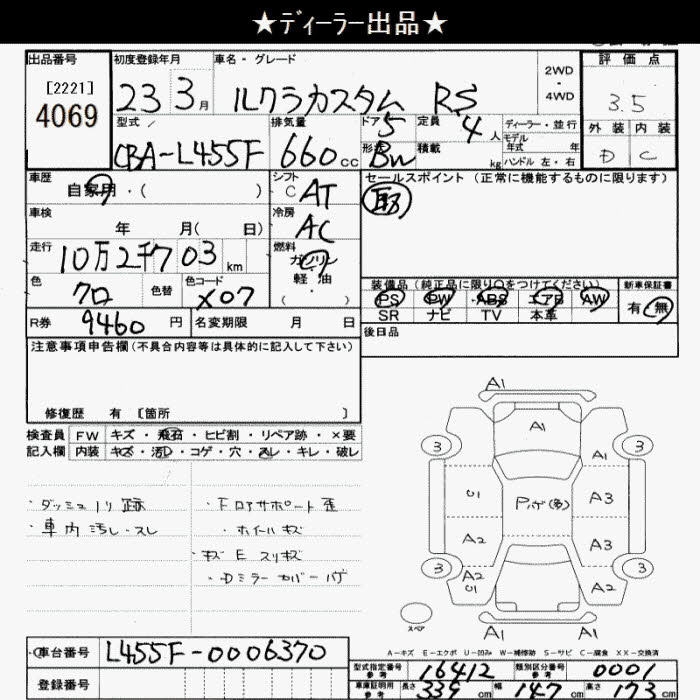 ★ディーラー出品★
出品番号
[2221]
4069
初度登録年月
23 3月
車名・グレード
ルクラカスタム RS
2WD
・
4WD
評価点
3.5
外装 内装
D C
型式
CBA-L455F
排気量
660cc
ドア 5
形状 Bw
定員 4人
積載 kg
ディーラー・並行
モデル
年式 年
ハンドル 左・右
車歴
自家用・( )
シフト
C AT
セールスポイント (正常に機能するものに限ります)
車検
年 月( 日)
冷房
AC
走行
10万2千703km
燃料
ガソリン
軽油
( ・ )
色
クロ
色替
色コード
X07
装備品(純正品に限り○をつけてください)
PS PW ABS エアB AW
SR ナビ TV 本革
新車保証書
有・無
R券 9460円
名変期限 月 日
後日品
注意事項申告欄(不具合内容等は具体的に記入して下さい)
修復歴 有 [箇所 ]
検査員 FW キズ・飛石・ヒビ割・リペア跡・×要
記入欄 内装 キズ・汚れ・コゲ・穴・スレ・キレ・破レ
・ダッシュノリ跡
・車内汚レ・スレ
・Fロアサポート歪
・ホイールキズ
・キズE スリキズ
・Dミラーカバーハゲ
A1
A1
A1
3
3
U1
Pハゲ(多)
A3
A2
A3
3
3
A2
U1
A2
スペア
A1
A-キズ E-エクボ U-凹み W-補修跡 S-サビ C-腐食 XX-交換済
車台番号 L455F-0006370
登録番号
型式指定番号
参考
16412
類別区分番号
参考
0001
車庫証明用
参考
長さ 339cm
幅 147cm
高さ 173cm